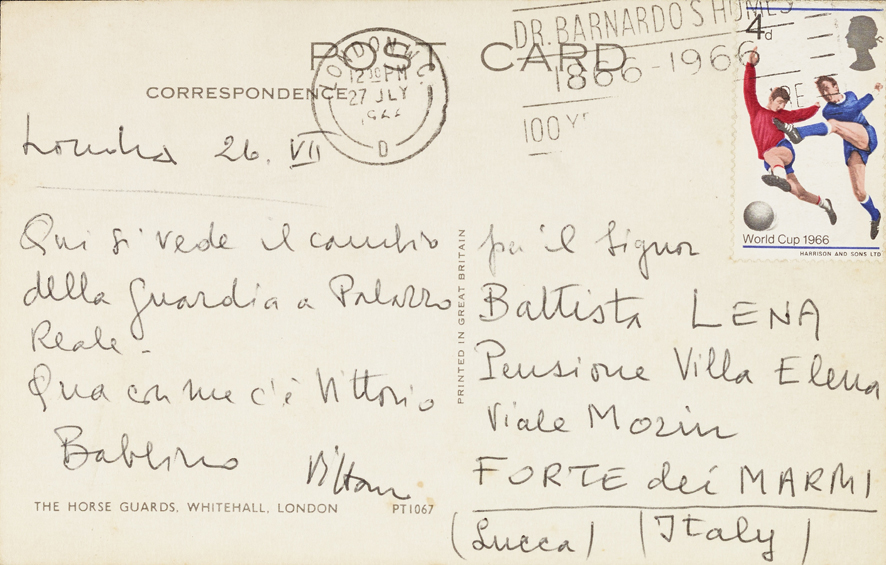 POST CARD
CORRESPONDENCE
LONDON W.C.
12 30 PM
27 JLY
1966
D
DR. BARNARDO'S HOMES
1866-1966
100 Y
4d
World Cup 1966
HARRISON AND SONS LTD
Londra 26. VII
Qui si vede il cambio
della guardia a Palazzo
Reale -
Qua con me c'è Vittorio
Babbino
THE HORSE GUARDS, WHITEHALL, LONDON PT1067
PRINTED IN GREAT BRITAIN
per il Signor
Battista LENA
Pensione Villa Elena
Viale Morin
FORTE dei MARMI
(Lucca) (Italy)